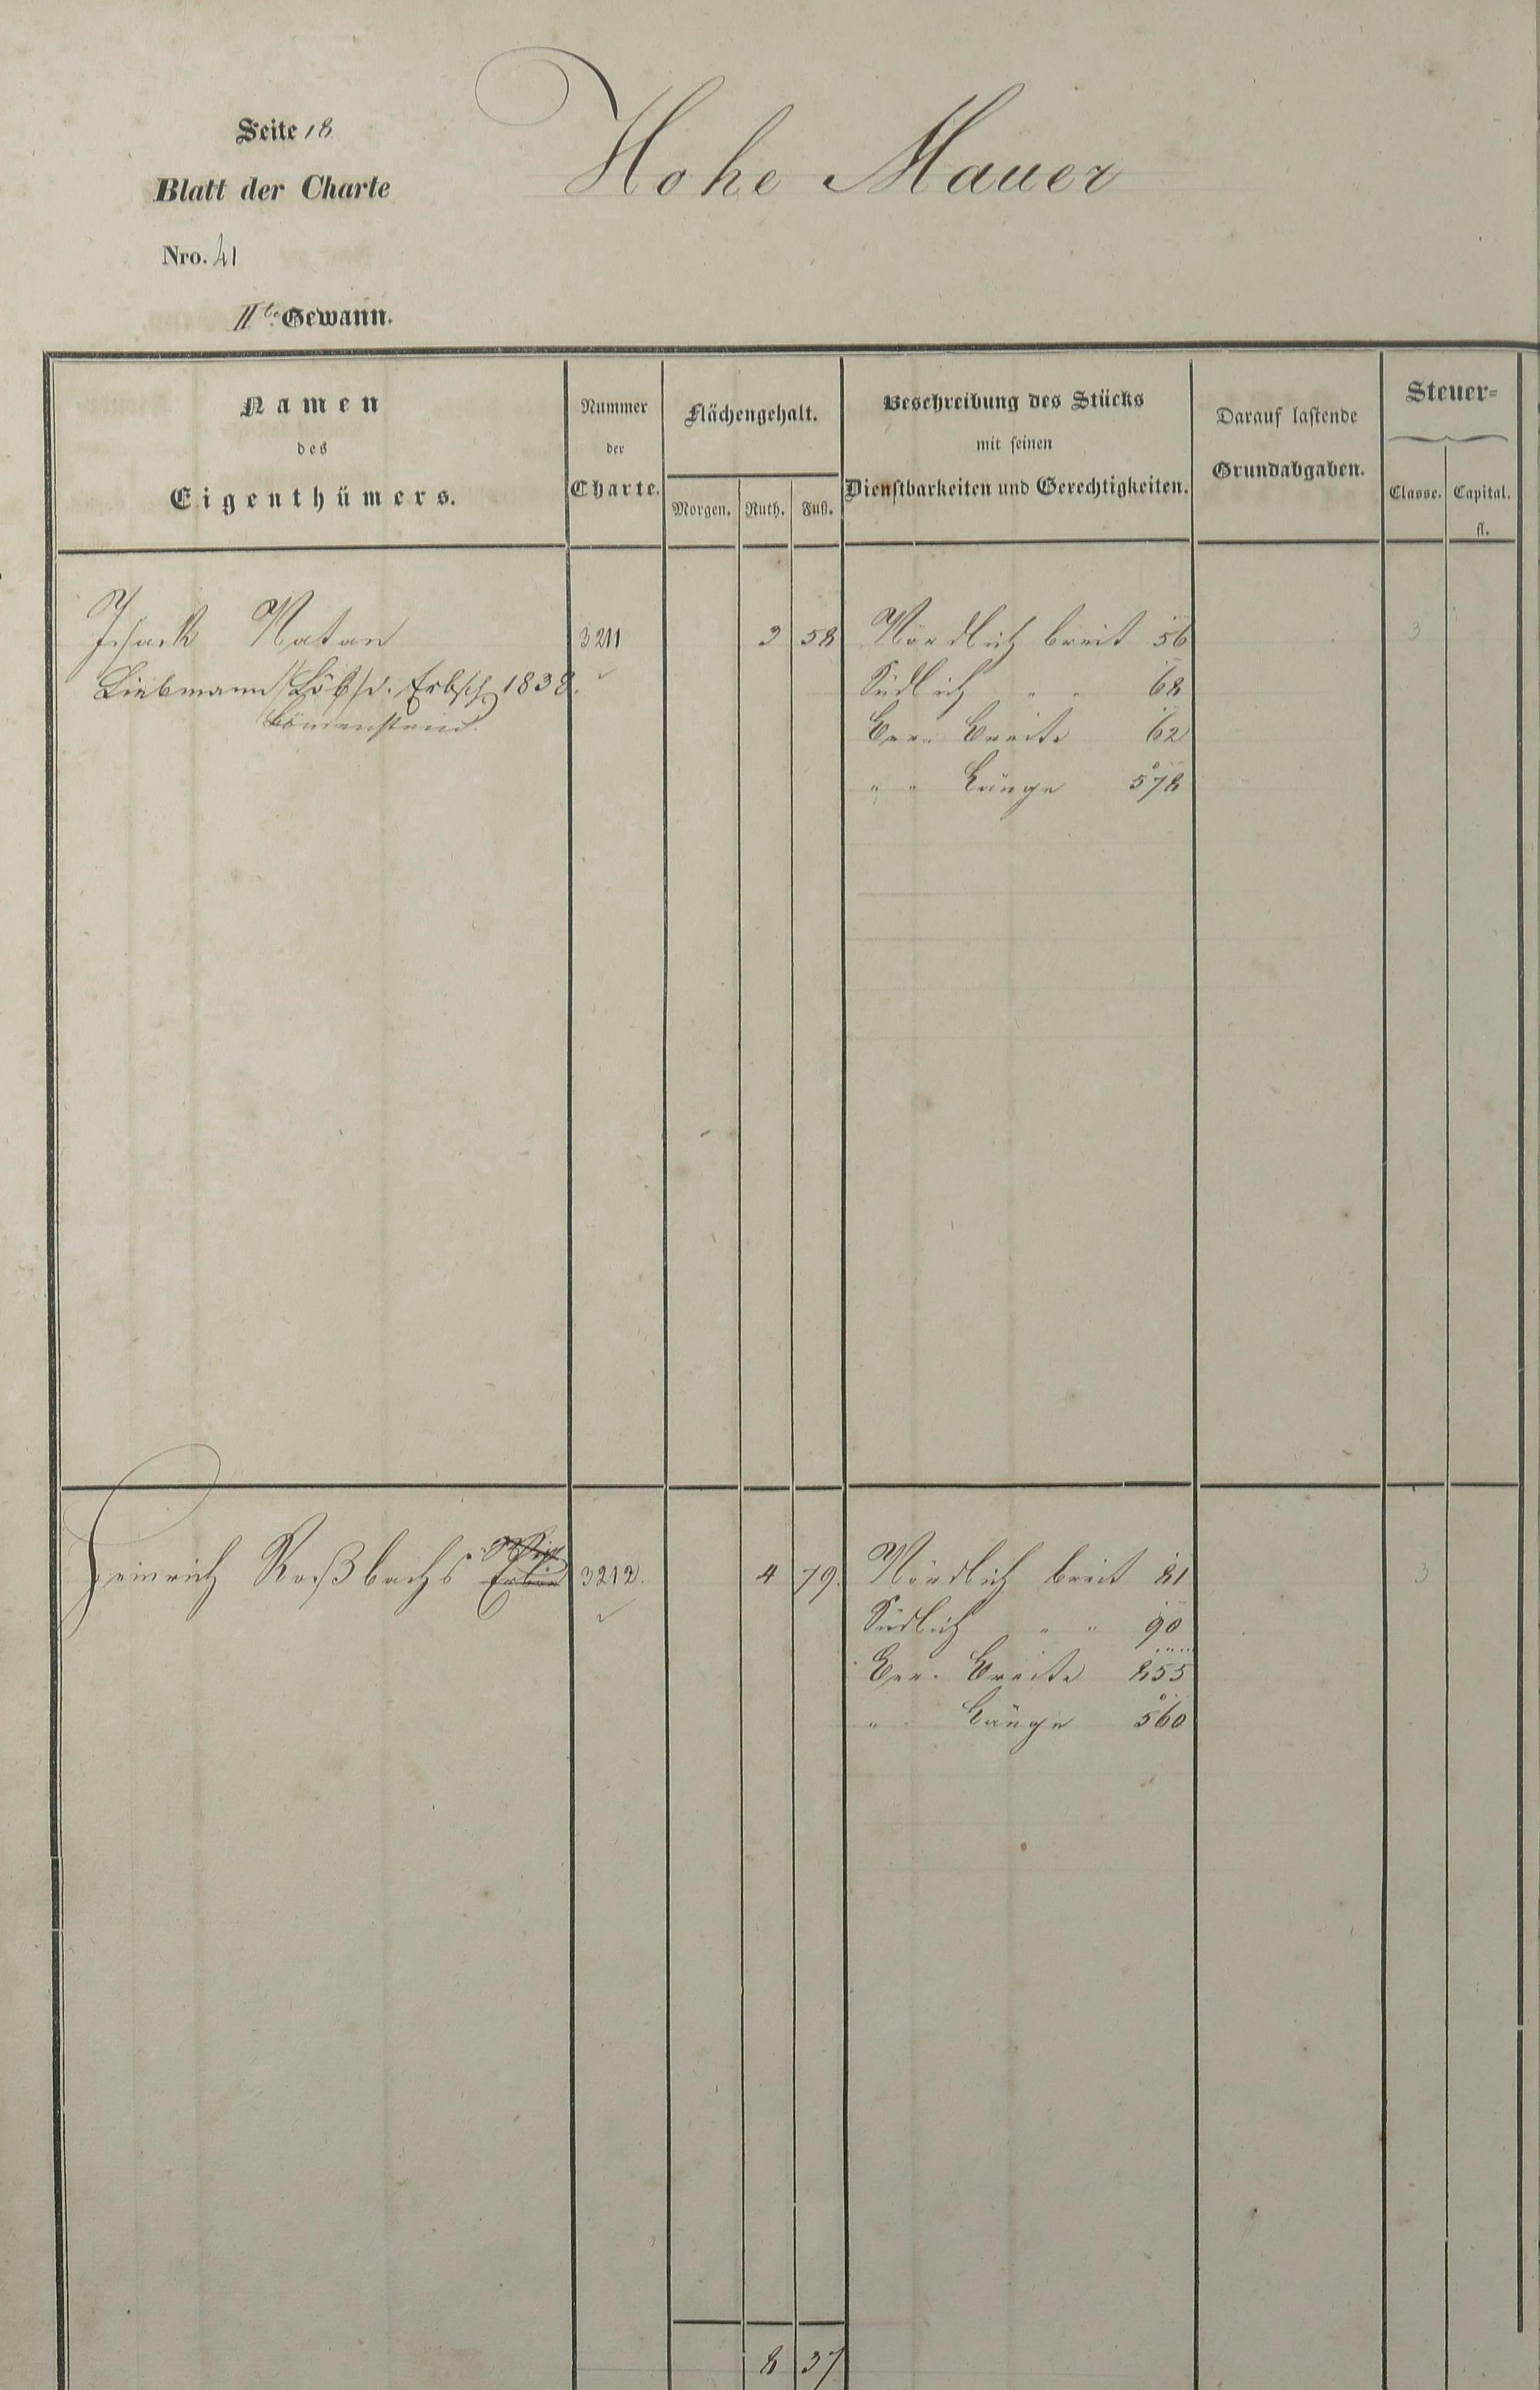 Seite 18
Hohe Mauer
Blatt der Charte
Nro. 41
IIte Gewann.
Namen
des
Eigenthümers.
Nummer
der
Charte.
Flächengehalt.
Morgen. Ruth. Fuß.
Beschreibung des Stücks
mit seinen
Dienstbarkeiten und Gerechtigkeiten.
Darauf lastende
Grundabgaben.
Steuer=
Classe. Capital.
fl.
Isaack Natan 3211 3 58 Nördlich breit 56 3
Liebmann Löb, d. Erbsch. 1838. Südlich " " 68
Löwenstein. Ber. Breite 62
" " Länge 578
Heinrich Roßbachs Erben 3212. 4 79. Nördlich breit 81 3
Südlich " " 90
Ber. Breite 855
" Länge 560
8 37